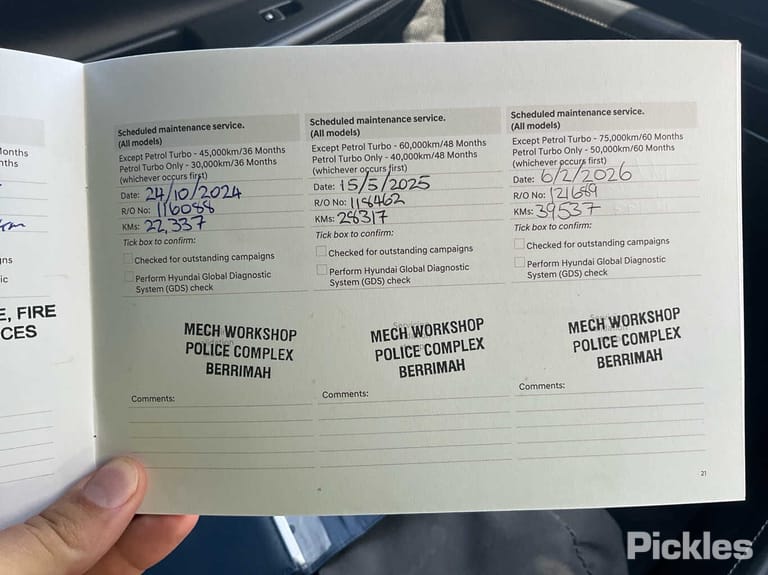 onths
nths
gns
ic
E, FIRE
CES
Scheduled maintenance service.
(All models)
Except Petrol Turbo - 45,000km/36 Months
Petrol Turbo Only - 30,000km/36 Months
(whichever occurs first)
Date: 24/10/2024
R/O No: 116088
KMs: 22,337
Tick box to confirm:
Checked for outstanding campaigns
Perform Hyundai Global Diagnostic
System (GDS) check
MECH WORKSHOP
POLICE COMPLEX
BERRIMAH
Comments:
Scheduled maintenance service.
(All models)
Except Petrol Turbo - 60,000km/48 Months
Petrol Turbo Only - 40,000km/48 Months
(whichever occurs first)
Date: 15/5/2025
R/O No: 118462
KMs: 28317
Tick box to confirm:
Checked for outstanding campaigns
Perform Hyundai Global Diagnostic
System (GDS) check
MECH WORKSHOP
POLICE COMPLEX
BERRIMAH
Comments:
Scheduled maintenance service.
(All models)
Except Petrol Turbo - 75,000km/60 Months
Petrol Turbo Only - 50,000km/60 Months
(whichever occurs first)
Date: 6/2/2026
R/O No: 121689
KMs: 39537
Tick box to confirm:
Checked for outstanding campaigns
Perform Hyundai Global Diagnostic
System (GDS) check
MECH WORKSHOP
POLICE COMPLEX
BERRIMAH
Comments:
21
Pickles